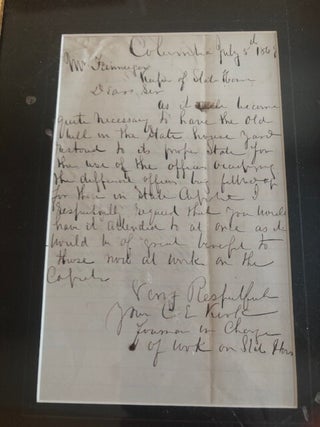 Columbia July 5th 186
Mr Finnegan
Keeper of State House
Dear Sir
as it become
quite necessary to have the old
Well in the State house yard
restored to its proper State for
the use of the officers occupying
the different offices
for those in State Capitol I
Respectfully request that you would
have it attended to at once as it
would be of great benefit to
those now at work on the
Capitol
Very Respectful
Your C E Kirk
Foreman in Charge
of work on State Hous